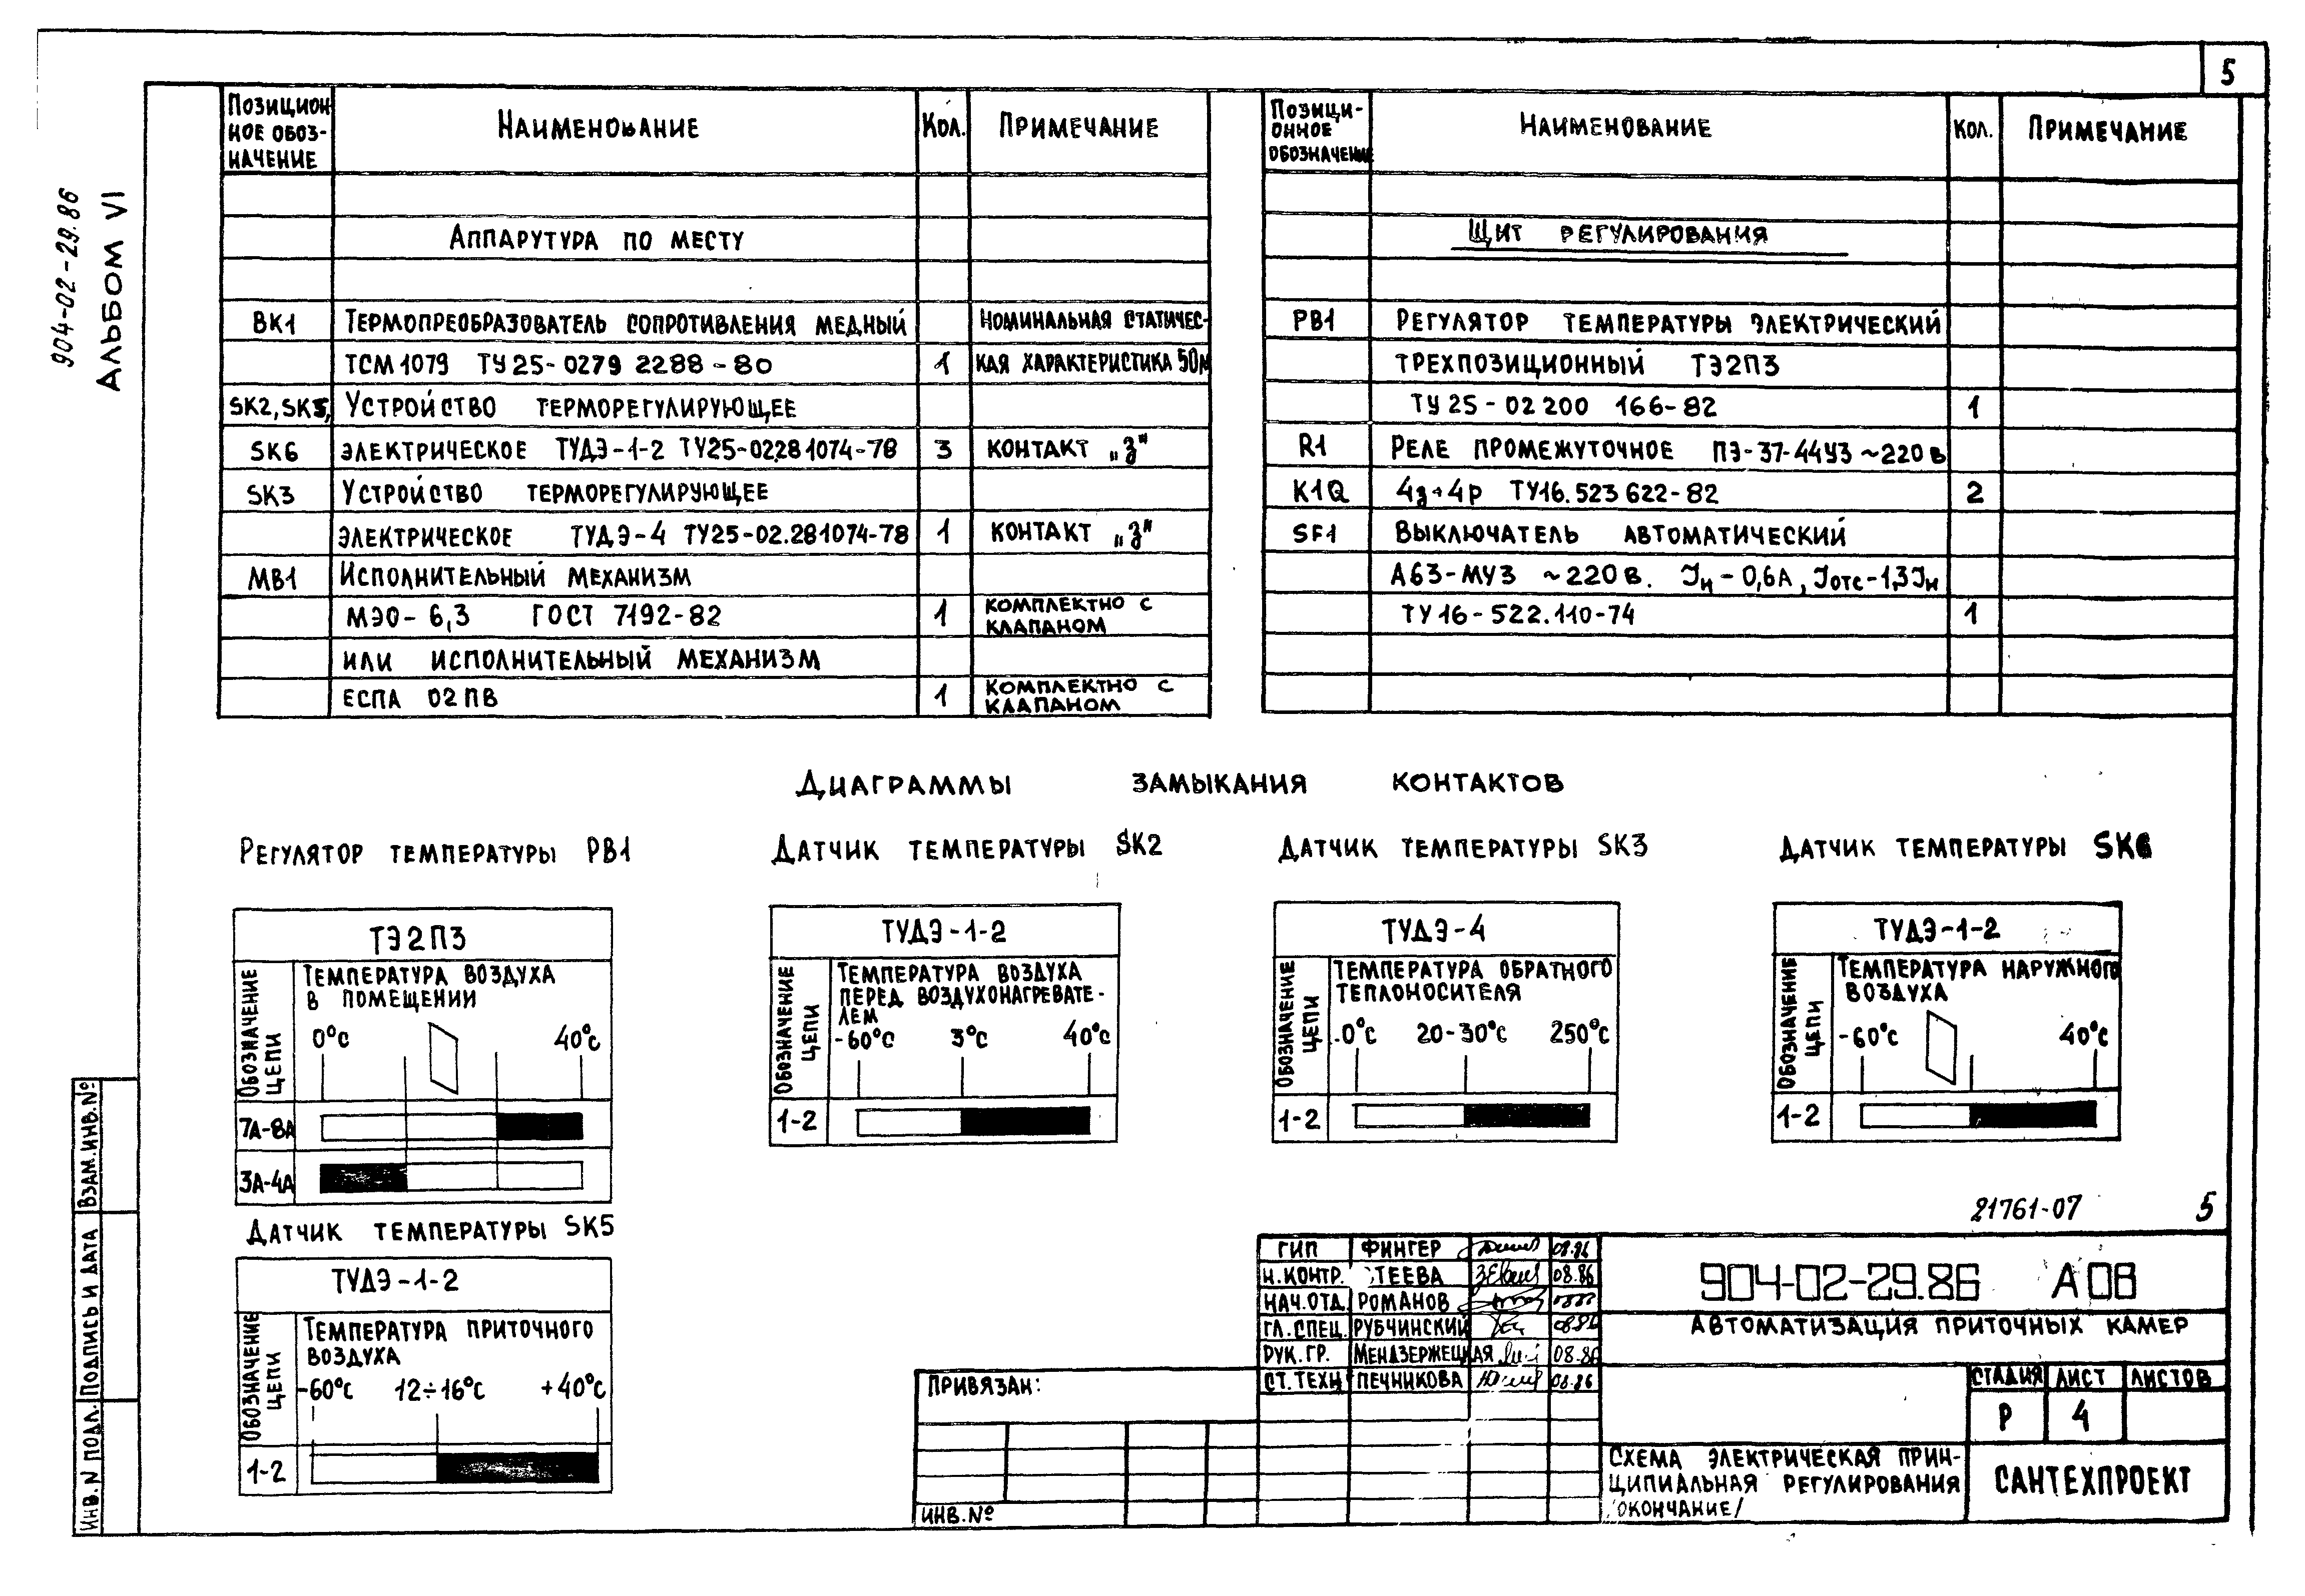 5
904-02-29.86
АЛЬБОМ VI
ПОЗИЦИОН
НОЕ ОБОЗ-
НАЧЕНИЕ
НАИМЕНОВАНИЕ
КОЛ.
ПРИМЕЧАНИЕ
АППАРУТУРА ПО МЕСТУ
ВК1 ТЕРМОПРЕОБРАЗОВАТЕЛЬ СОПРОТИВЛЕНИЯ МЕДНЫЙ НОМИНАЛЬНАЯ СТАТИЧЕС-
ТСМ1079 ТУ25-0279 2288-80 1 КАЯ ХАРАКТЕРИСТИКА 50М
SK2, SK5, УСТРОЙСТВО ТЕРМОРЕГУЛИРУЮЩЕЕ
SK6 ЭЛЕКТРИЧЕСКОЕ ТУДЭ-1-2 ТУ25-02.281074-78 3 КОНТАКТ „З"
SK3 УСТРОЙСТВО ТЕРМОРЕГУЛИРУЮЩЕЕ
ЭЛЕКТРИЧЕСКОЕ ТУДЭ-4 ТУ25-02.281074-78 1 КОНТАКТ „З"
МВ1 ИСПОЛНИТЕЛЬНЫЙ МЕХАНИЗМ
МЭО-6,3 ГОСТ 7192-82 1 КОМПЛЕКТНО С
КЛАПАНОМ
ИЛИ ИСПОЛНИТЕЛЬНЫЙ МЕХАНИЗМ
ЕСПА 02ПВ 1 КОМПЛЕКТНО С
КЛАПАНОМ
ПОЗИЦИ-
ОННОЕ
ОБОЗНАЧЕНИЕ
НАИМЕНОВАНИЕ
КОЛ.
ПРИМЕЧАНИЕ
ЩИТ РЕГУЛИРОВАНИЯ
РВ1 РЕГУЛЯТОР ТЕМПЕРАТУРЫ ЭЛЕКТРИЧЕСКИЙ
ТРЕХПОЗИЦИОННЫЙ ТЭ2П3
ТУ25-02 200 166-82 1
R1 РЕЛЕ ПРОМЕЖУТОЧНОЕ ПЭ-37-44У3 ~220В
K1Q 4з+4р ТУ16.523 622-82 2
SF1 ВЫКЛЮЧАТЕЛЬ АВТОМАТИЧЕСКИЙ
А63-МУ3 ~220В. Iн-0,6А, Iотс-1,3Iн
ТУ16-522.110-74 1
ДИАГРАММЫ ЗАМЫКАНИЯ КОНТАКТОВ
РЕГУЛЯТОР ТЕМПЕРАТУРЫ РВ1
ТЭ2П3
ОБОЗНАЧЕНИЕ
ЦЕПИ
ТЕМПЕРАТУРА ВОЗДУХА
В ПОМЕЩЕНИИ
0°С 40°С
7А-8А
3А-4А
ДАТЧИК ТЕМПЕРАТУРЫ SK2
ТУДЭ-1-2
ОБОЗНАЧЕНИЕ
ЦЕПИ
ТЕМПЕРАТУРА ВОЗДУХА
ПЕРЕД ВОЗДУХОНАГРЕВАТЕ-
ЛЕМ
-60°С 3°С 40°С
1-2
ДАТЧИК ТЕМПЕРАТУРЫ SK3
ТУДЭ-4
ОБОЗНАЧЕНИЕ
ЦЕПИ
ТЕМПЕРАТУРА ОБРАТНОГО
ТЕПЛОНОСИТЕЛЯ
0°С 20-30°С 250°С
1-2
ДАТЧИК ТЕМПЕРАТУРЫ SK6
ТУДЭ-1-2
ОБОЗНАЧЕНИЕ
ЦЕПИ
ТЕМПЕРАТУРА НАРУЖНОГО
ВОЗДУХА
-60°С 40°С
1-2
ДАТЧИК ТЕМПЕРАТУРЫ SK5
ТУДЭ-1-2
ОБОЗНАЧЕНИЕ
ЦЕПИ
ТЕМПЕРАТУРА ПРИТОЧНОГО
ВОЗДУХА
-60°С 12÷16°С +40°С
1-2
21761-07 5
ГИП ФИНГЕР 08.86
Н.КОНТР. ТЕЕВА 08.86
НАЧ.ОТД. РОМАНОВ
ГЛ.СПЕЦ. РУБЧИНСКИЙ 08.86
РУК.ГР. МЕНДЗЕРЖЕЦКАЯ 08.86
СТ.ТЕХН ПЕЧНИКОВА 08.86
904-02-29.86 АОВ
АВТОМАТИЗАЦИЯ ПРИТОЧНЫХ КАМЕР
СТАДИЯ ЛИСТ ЛИСТОВ
Р 4
СХЕМА ЭЛЕКТРИЧЕСКАЯ ПРИН-
ЦИПИАЛЬНАЯ РЕГУЛИРОВАНИЯ
/ОКОНЧАНИЕ/
САНТЕХПРОЕКТ
ПРИВЯЗАН:
ИНВ.№
ВЗАМ.ИНВ.№
ПОДПИСЬ И ДАТА
ИНВ.N ПОДЛ.